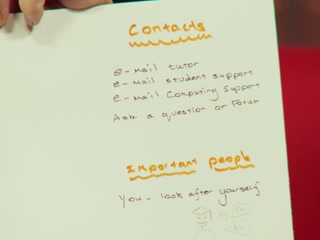 Contacts
e-mail tutor
e-mail student support
e-mail Computing Support
Ask a question or Forum
Important people
You - look after yourself